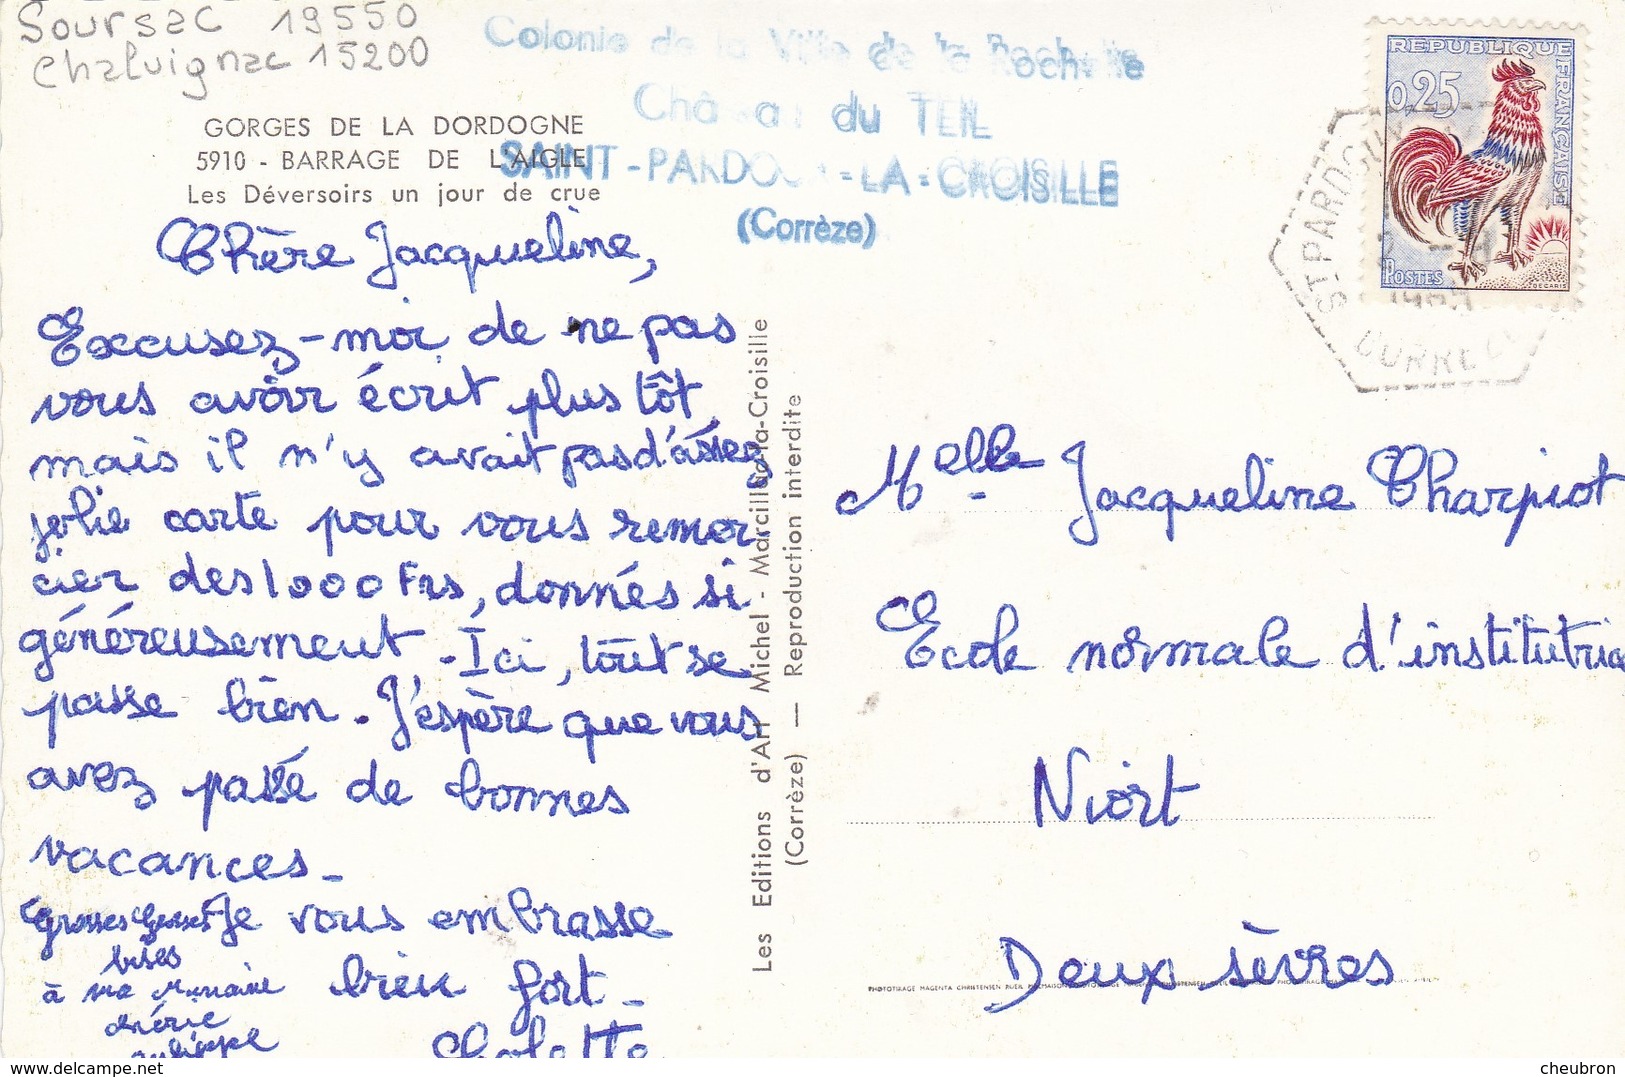 Soursac 19550
Chalvignac 15200
Colonie de la Ville de la Rochelle
Château du TEIL
SAINT-PARDOUX-LA-CROISILLE
(Corrèze)
GORGES DE LA DORDOGNE
5910 - BARRAGE DE L'AIGLE
Les Déversoirs un jour de crue
REPUBLIQUE FRANÇAISE
0,25
POSTES
DECARIS
ST PARDOUX
CORREZE
Chère Jacqueline,
Excusez-moi de ne pas
vous avoir écrit plus tôt,
mais il n'y avait pas d'assez
jolie carte pour vous remer
cier des 1000 Frs, donnés si
généreusement - Ici, tout se
passe bien. J'espère que vous
avez passé de bonnes
vacances -
Je vous embrasse
bien fort -
Grosses Grosses
bises
à ma
chérie
philippe
Les Editions d'Art Michel - Marcillac-la-Croisille
(Corrèze) — Reproduction interdite
Melle Jacqueline Charpiot
Ecole normale d'institutrice
Niort
Deux Sèvres
PHOTOTIRAGE MAGENTA CHRISTENSEN RUEIL MALMAISON
delcampe.net
cheubron